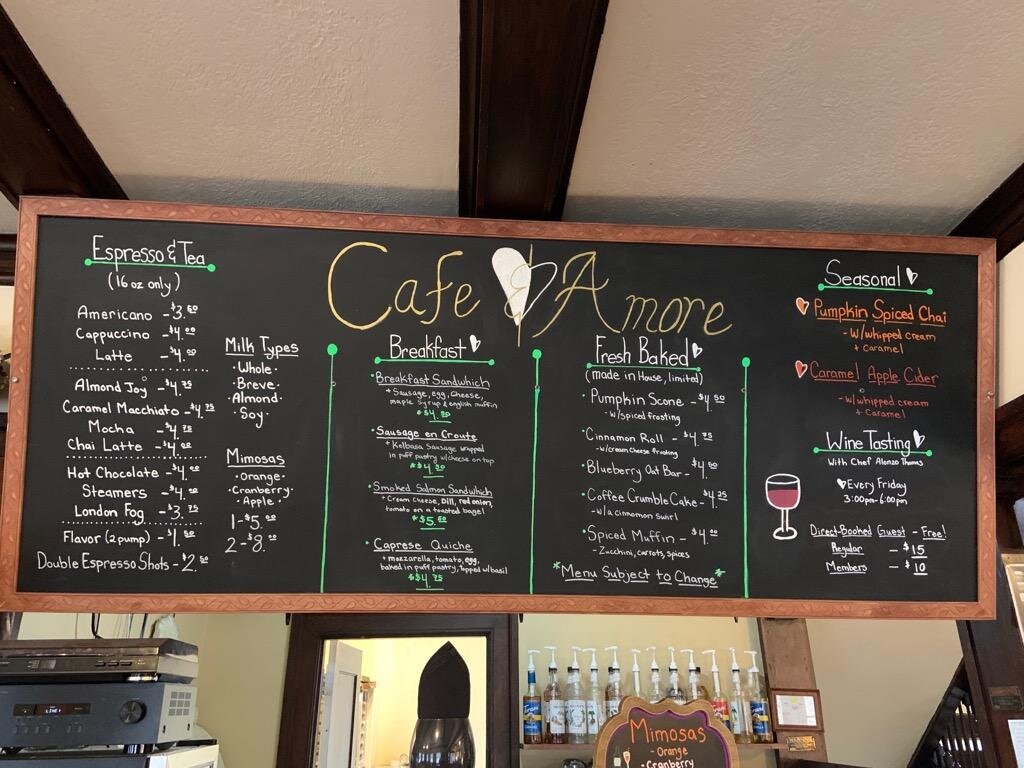 Cafe Amore
Espresso & Tea
(16 oz only)
Americano - $3.50
Cappuccino - $4.00
Latte - $4.00
Almond Joy - $4.75
Caramel Macchiato - $4.75
Mocha - $4.75
Chai Latte - $4.00
Hot Chocolate - $4.00
Steamers - $4.00
London Fog - $3.75
Flavor (2 pump) - $1.50
Double Espresso Shots - $2.50
Milk Types
·Whole·
·Breve·
·Almond·
·Soy·
Mimosas
·Orange·
·Cranberry·
·Apple·
1 - $5.00
2 - $8.00
Breakfast
·Breakfast Sandwhich
+ Sausage, egg, cheese,
maple syrup & english muffin
*$4.50
·Sausage en Croute
+ Kelbasa Sausage wrapped
in puff pastry w/cheese on top
*$4.50
·Smoked Salmon Sandwhich
+ Cream cheese, Dill, red onion,
tomato on a toasted bagel
*$5.50
·Caprese Quiche
+ mozzarella, tomato, egg,
baked in puff pastry, topped w/basil
*$4.75
Fresh Baked
(made in House, limited)
·Pumpkin Scone - $4.50
- w/spiced frosting
·Cinnamon Roll - $4.75
- w/cream cheese frosting
·Blueberry Oat Bar -
·Coffee Crumble Cake - $4.25
- w/a cinnomon swirl
·Spiced Muffin - $4.00
- Zucchini, carrots, spices
*Menu Subject to Change*
Seasonal
Pumpkin Spiced Chai
- w/whipped cream
+ Caramel
Caramel Apple Cider
- w/whipped cream
+ Caramel
Wine Tasting
With Chef Alonzo Thomas
Every Friday
3:00pm-6:00pm
Direct-Booked Guest - Free!
Regular - $15
Members - $10
Mimosas
- Orange
- Cranberry